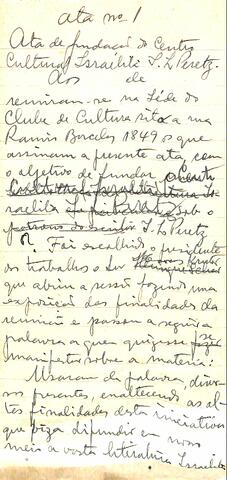 ata nº 1
Ata de fundação do Centro
Cultura Israelita I. L. Peretz.
Aos de
reuniram-se na séde do
Clube de Cultura sita a rua
Ramiro Barcelos 1849 os que
assinam a presente ata, com
o objetivo de fundar, o Centro
Cultural Israelita
sob o
patrono do escritor I. L. Peretz
Foi escolhido o presidente
os trabalhos o snr
que abriu a sessão fazendo uma
exposição das finalidades da
reunião e passou a seguir a
palavra a quem quizesse se
manifestar sobre a materia:
Usaram da palavra, diver-
sos presentes, enaltecendo as al-
tas finalidades desta iniciativa
que viza difundir em nosso
meio a vasta literatura Israelita